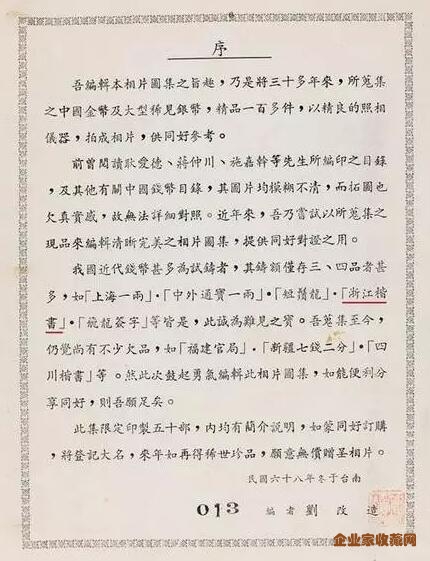 序
吾編輯本相片圖集之旨趣，乃是將三十多年來，所蒐集
之中國金幣及大型稀見銀幣，精品一百多件，以精良的照相
儀器，拍成相片，供同好參考。
前曾閱讀耿愛德、蔣仲川、施嘉幹等先生所編印之目錄
，及其他有關中國錢幣目錄，其圖片均模糊不清，而拓圖也
欠真實感，故無法詳細對照。近年來，吾乃嘗試以所蒐集之
現品來編輯清晰完美之相片圖集，提供同好對證之用。
我國近代錢幣甚多為試鑄者，其鑄額僅存三、四品者甚
多，如「上海一兩」．「中外通寶一兩」．「短鬚龍」．「浙江楷
書」．「飛龍簽字」等皆是，此誠為難見之寶。吾蒐集至今，
仍覺尚有不少欠品，如「福建官局」．「新疆七錢二分」．「四
川楷書」等。然此次鼓起勇氣編輯此相片圖集，如能便利分
享同好，則吾願足矣。
此集限定印製五十部，內均有簡介說明，如蒙同好訂購
，將登記大名，來年如再得稀世珍品，願意無價贈呈相片。
民國六十八年冬于台南
013 編者 劉改造
企业家收藏网